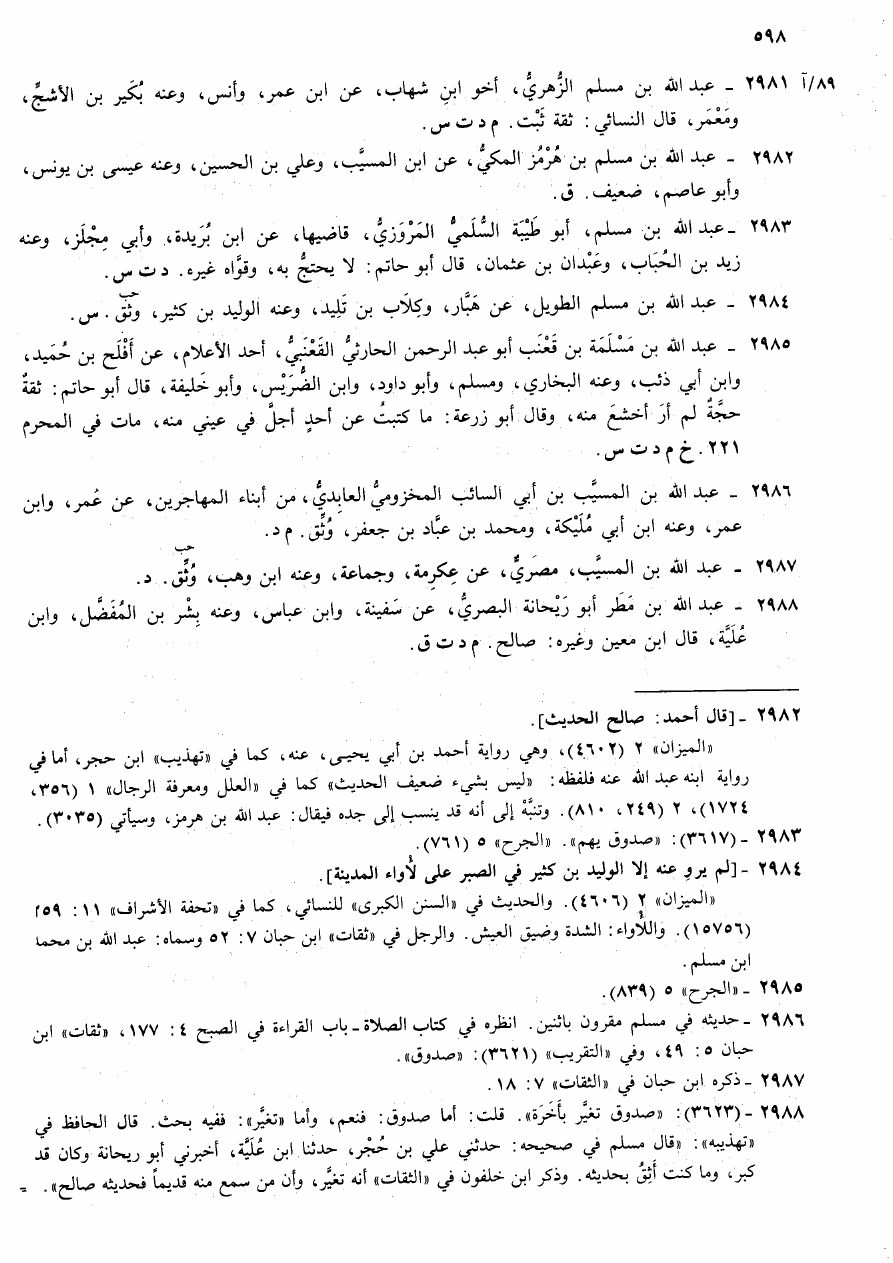 ٥٩٨
٨٩/آ ٢٩٨١ - عبد الله بن مسلم الزُّهريُّ، أخو ابنِ شهاب، عن ابن عمر، وأنس، وعنه بُكَير بن الأشجِّ،
ومَعْمَر، قال النسائي: ثقة ثَبْت. م د ت س.
٢٩٨٢ - عبد الله بن مسلم بن هُرْمُز المكيُّ، عن ابن المسيَّب، وعلي بن الحسين، وعنه عيسى بن يونس،
وأبو عاصم، ضعيف. ق.
٢٩٨٣ - عبد الله بن مسلم، أبو طَيْبَة السُّلَميُّ المَرْوَزيُّ، قاضيها، عن ابن بُرَيدة، وأبي مِجْلَز، وعنه
زيد بن الحُبَاب، وعَبْدان بن عثمان، قال أبو حاتم: لا يحتجُّ به، وقوَّاه غيره. د ت س.
٢٩٨٤ - عبد الله بن مسلم الطويل، عن هَبَّار، وكِلَاب بن تَلِيد، وعنه الوليد بن كثير، وثِّق. س.
حب
٢٩٨٥ - عبد الله بن مَسْلَمَة بن قَعْنَب أبو عبد الرحمن الحارثيُّ القَعْنَبيُّ، أحد الأعلام، عن أَفْلَح بن حُمَيد،
وابن أبي ذئب، وعنه البخاري، ومسلم، وأبو داود، وابن الضُّرَيْس، وأبو خَليفة، قال أبو حاتم: ثقةٌ
حجَّةٌ لم أرَ أخشعَ منه، وقال أبو زرعة: ما كتبتُ عن أحدٍ أجلَّ في عيني منه، مات في المحرم
٢٢١. خ م د ت س.
٢٩٨٦ - عبد الله بن المسيَّب بن أبي السائب المخزوميُّ العابِديُّ، من أبناء المهاجرين، عن عُمر، وابن
عمر، وعنه ابن أبي مُلَيْكة، ومحمد بن عبَّاد بن جعفر، وُثِّق. م د.
حب
٢٩٨٧ - عبد الله بن المسيَّب، مصريٌّ، عن عِكرِمة، وجماعة، وعنه ابن وهب، وُثِّق. د.
٢٩٨٨ - عبد الله بن مَطَر أبو رَيْحانة البصريُّ، عن سَفينة، وابن عباس، وعنه بِشْر بن المُفَضَّل، وابن
عُلَيَّة، قال ابن معين وغيره: صالح. م د ت ق.
٢٩٨٢ - [قال أحمد: صالح الحديث].
«الميزان» ٢ (٤٦٠٢)، وهي رواية أحمد بن أبي يحيى، عنه، كما في «تهذيب» ابن حجر، أما في
رواية ابنه عبد الله عنه فلفظه: «ليس بشيء ضعيف الحديث» كما في «العلل ومعرفة الرجال» ١ (٣٥٦،
١٧٢٤)، ٢ (٢٤٩، ٨١٠). وتنبَّهْ إلى أنه قد ينسب إلى جده فيقال: عبد الله بن هرمز، وسيأتي (٣٠٣٥).
٢٩٨٣ - (٣٦١٧): «صدوق يهم». «الجرح» ٥ (٧٦١).
٢٩٨٤ - [لم يروِ عنه إلا الوليد بن كثير في الصبر على لأواء المدينة].
«الميزان» ٢ (٤٦٠٦). والحديث في «السنن الكبرى» للنسائي، كما في «تحفة الأشراف» ١١: ٢٥٩
(١٥٧٥٦). واللأواء: الشدة وضيق العيش. والرجل في «ثقات» ابن حبان ٧: ٥٢ وسماه: عبد الله بن محمد
ابن مسلم.
٢٩٨٥ - «الجرح» ٥ (٨٣٩).
٢٩٨٦ - حديثه في مسلم مقرون باثنين. انظره في كتاب الصلاة - باب القراءة في الصبح ٤: ١٧٧، «ثقات» ابن
حبان ٥: ٤٩، وفي «التقريب» (٣٦٢١): «صدوق».
٢٩٨٧ - ذكره ابن حبان في «الثقات» ٧: ١٨.
٢٩٨٨ - (٣٦٢٣): «صدوق تغيَّر بأَخَرَة». قلت: أما صدوق: فنعم، وأما «تغيَّر»: ففيه بحث. قال الحافظ في
«تهذيبه»: «قال مسلم في صحيحه: حدثني علي بن حُجْر، حدثنا ابن عُلَيَّة، أخبرني أبو ريحانة وكان قد
كبر، وما كنت أَثِقُ بحديثه. وذكر ابن خلفون في «الثقات» أنه تغيَّر، وأن من سمع منه قديماً فحديثه صالح». =